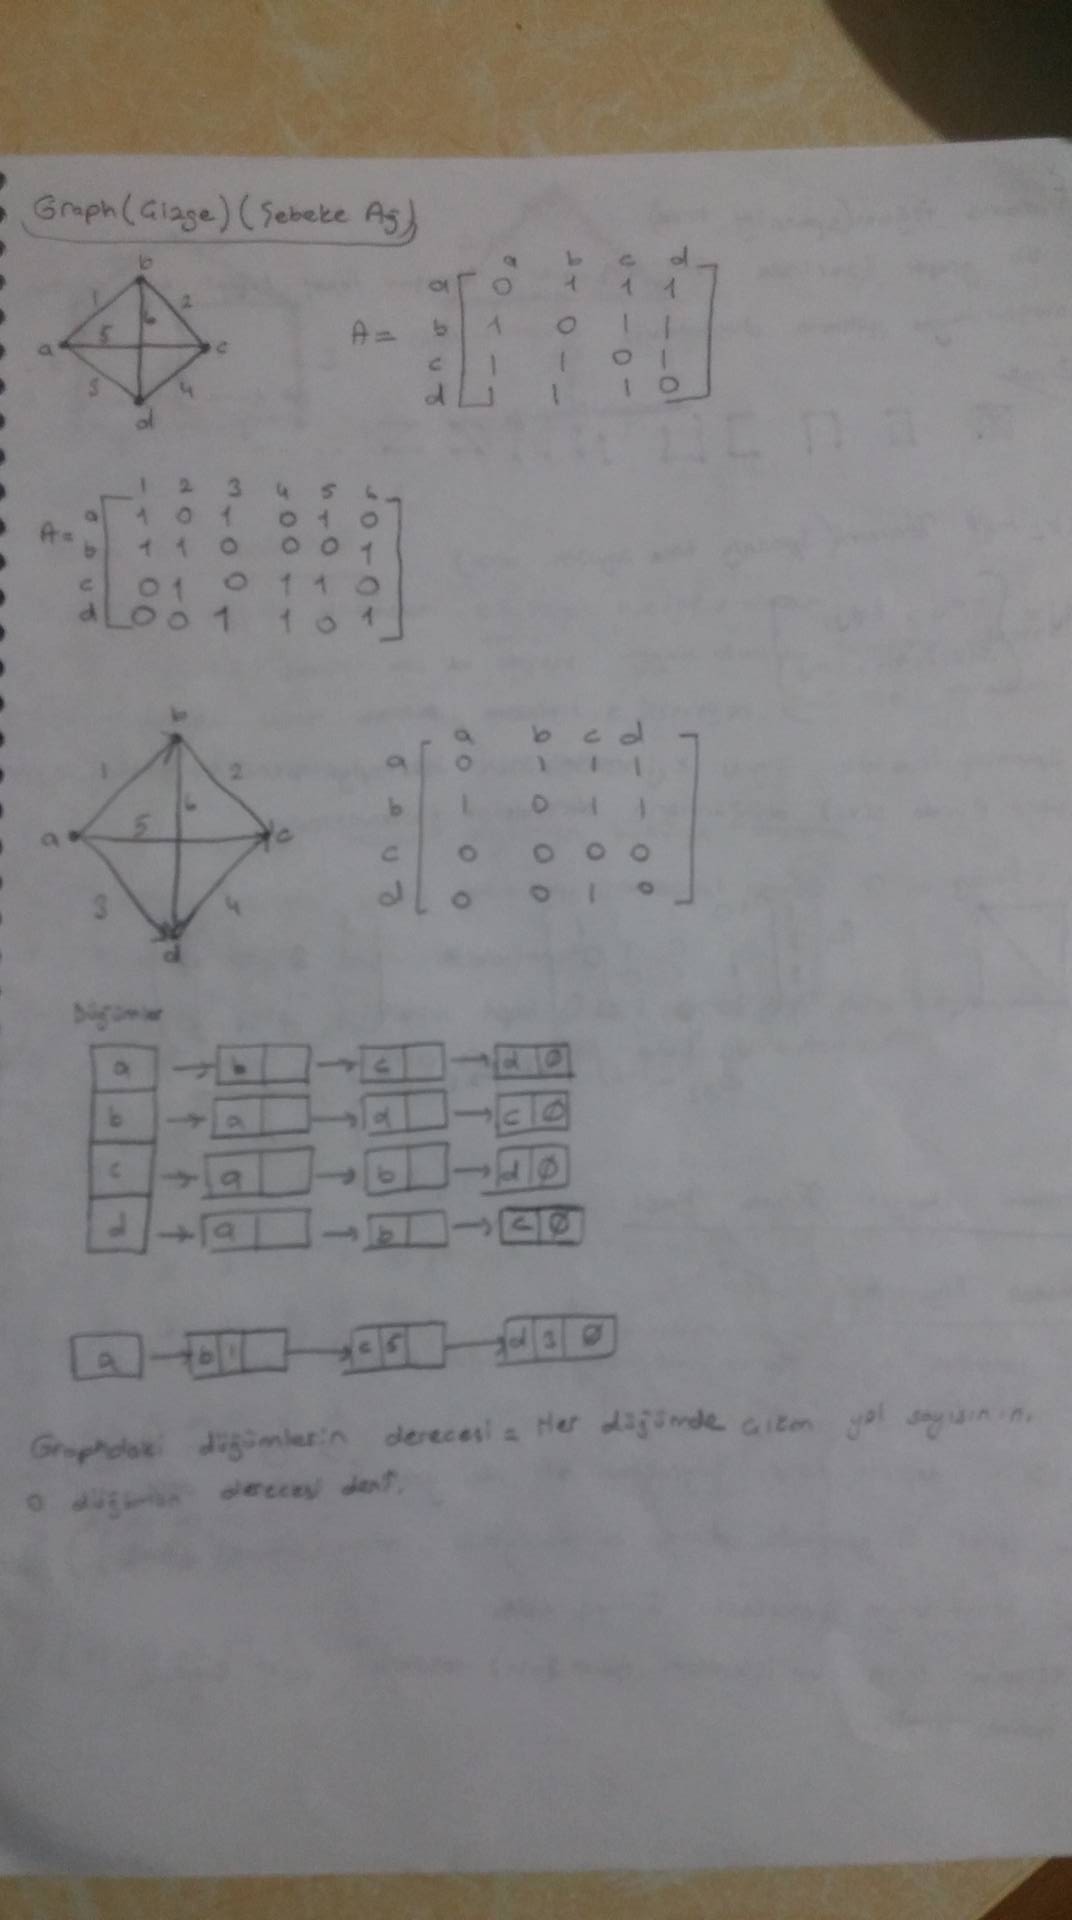 Graph (Çizge) (Şebeke Ağ)
b
1 2
6
5
a c
3 4
d
a b c d
a 0 1 1 1
A = b 1 0 1 1
c 1 1 0 1
d 1 1 1 0
1 2 3 4 5 6
a 1 0 1 0 1 0
A = b 1 1 0 0 0 1
c 0 1 0 1 1 0
d 0 0 1 1 0 1
b
1 2
6
5
a c
3 4
d
a b c d
a 0 1 1 1
b 1 0 1 1
c 0 0 0 0
d 0 0 1 0
Düğümler
a → b → c → d Ø
b → a → d → c Ø
c → a → b → d Ø
d → a → b → c Ø
a → b 1 → c 5 → d 3 Ø
Graphdaki düğümlerin derecesi = Her düğümde çıkan yol sayısının.
o düğümün derecesi denir.